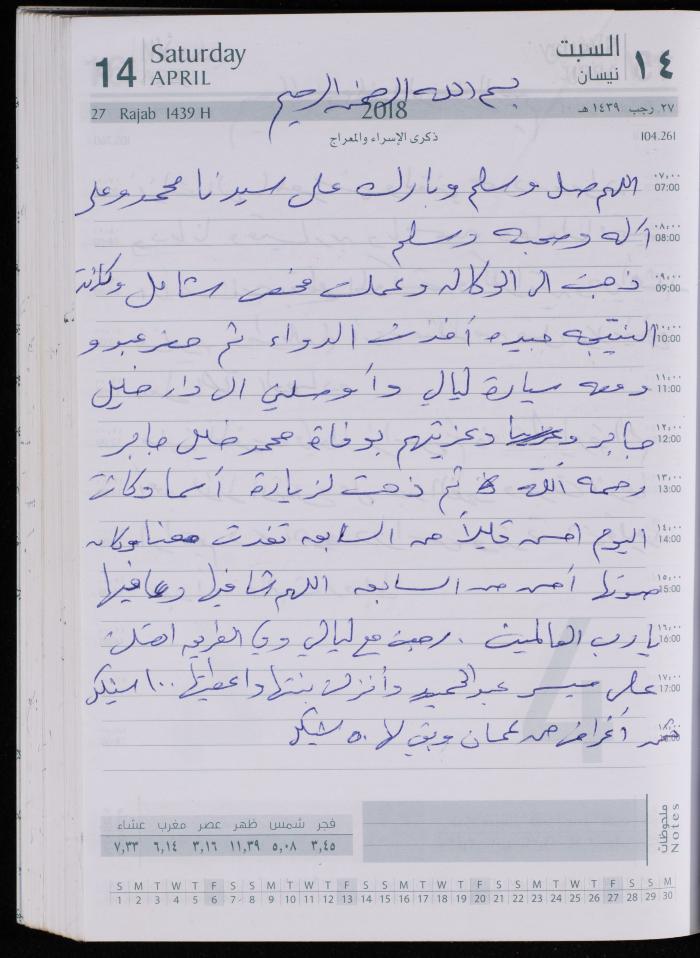 14 Saturday APRIL السبت نيسان ١٤
27 Rajab 1439 H 2018 ٢٧ رجب ١٤٣٩ هـ
بسم الله الرحمن الرحيم
ذكرى الإسراء والمعراج
104.261
٠٧:٠٠ 07:00 اللهم صل وسلم وبارك على سيدنا محمد وعلى
٠٨:٠٠ 08:00 آله وصحبه وسلم
٠٩:٠٠ 09:00 ذهبت الى الوكاله وعملت فحص شامل وكانت
١٠:٠٠ 10:00 النتيجه جيده أخذت الدواء ثم حضر عبدو
١١:٠٠ 11:00 ومعه سيارة ليالي وأوصلني الى دار خليل
١٢:٠٠ 12:00 جابر وعزيتهم بوفاة محمد خليل جابر
١٣:٠٠ 13:00 رحمه الله ثم ذهبت لزيارة أسما وكانت
١٤:٠٠ 14:00 اليوم احسن قليلاً من السابعه تغدت معنا وكان
١٥:٠٠ 15:00 صوتها أحسن من السابعه اللهم شافيها وعافيها
١٦:٠٠ 16:00 يارب العالمين . رجعت مع ليالي وفي الطريق
١٧:٠٠ 17:00 على ميسر عبدالحميد وأنزلت بنتها واعطيتها ١٠٠ شيكل
١٨:٠٠ 18:00 أغراض من عمان وبقي لها ٥٠ شيكل
ملحوظات Notes
فجر شمس ظهر عصر مغرب عشاء
٣,٤٥ ٥,٠٨ ١١,٣٩ ٣,١٦ ٦,١٤ ٧,٣٣
S M T W T F S S M T W T F S S M T W T F S S M T W T F S S M
1 2 3 4 5 6 7 8 9 10 11 12 13 14 15 16 17 18 19 20 21 22 23 24 25 26 27 28 29 30